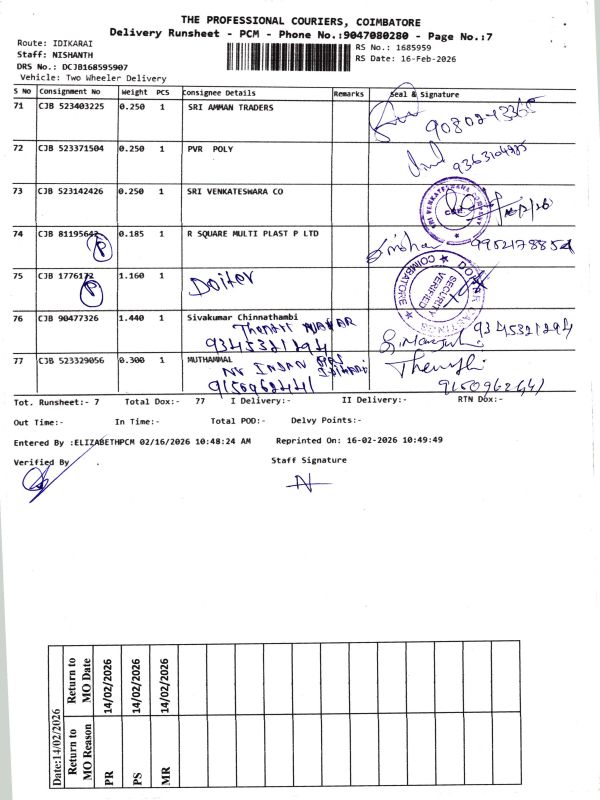 THE PROFESSIONAL COURIERS, COIMBATORE
Delivery Runsheet - PCM - Phone No.:9047080280 - Page No.:7
Route: IDIKARAI
Staff: NISHANTH
DRS No.: DCJB168595907
Vehicle: Two Wheeler Delivery
RS No.: 1685959
RS Date: 16-Feb-2026
S No Consignment No Weight PCS Consignee Details Remarks Seal & Signature
71 CJB 523403225 0.250 1 SRI AMMAN TRADERS
72 CJB 523371504 0.250 1 PVR POLY
73 CJB 523142426 0.250 1 SRI VENKATESWARA CO
74 CJB 0.185 1 R SQUARE MULTI PLAST P LTD
9952178854
P
75 CJB 1.160 1
P
COIMBATORE
SECURITY VERIFIED
76 CJB 90477326 1.440 1 Sivakumar Chinnathambi
9345321294
9345321294
77 CJB 523329056 0.300 1 MUTHAMMAL
9150962441
9150962441
Tot. Runsheet:- 7 Total Dox:- 77 I Delivery:- II Delivery:- RTN Dox:-
Out Time:- In Time:- Total POD:- Delvy Points:-
Entered By :ELIZABETHPCM 02/16/2026 10:48:24 AM Reprinted On: 16-02-2026 10:49:49
Verified By . Staff Signature
N
Date:14/02/2026
Return to MO Reason Return to MO Date
PR 14/02/2026
PS 14/02/2026
MR 14/02/2026